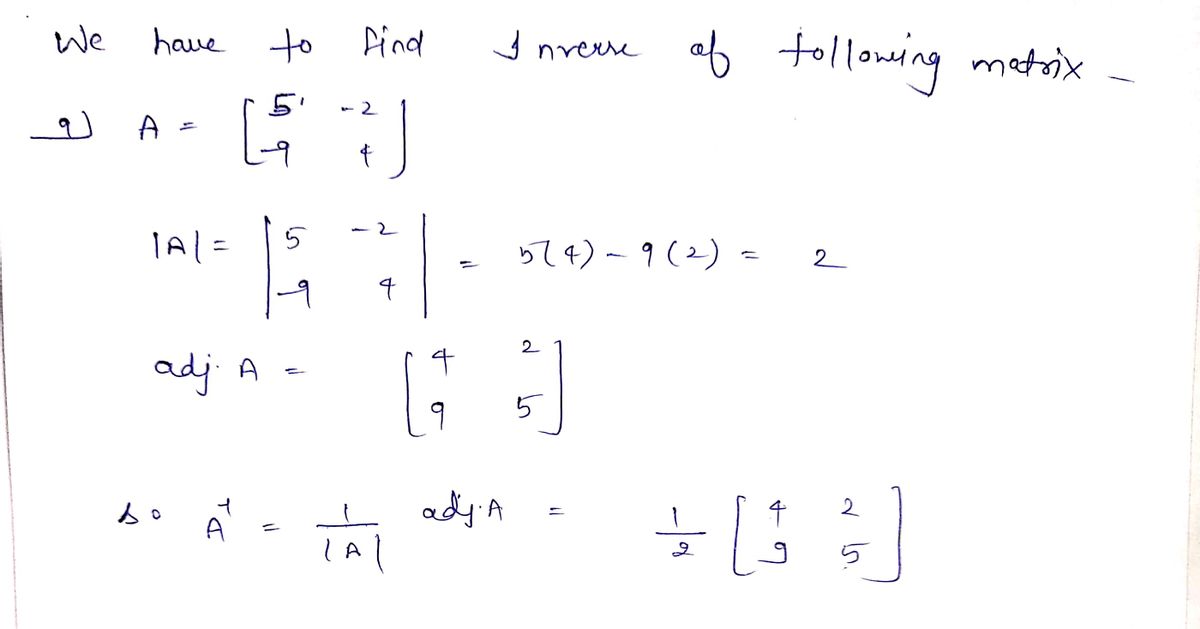 We have to find Inverse of following matrix -
9) A = [ 5 -2
-9 4 ]
|A| = | 5 -2
-9 4 | = 5(4) - 9(2) = 2
adj. A = [ 4 2
9 5 ]
so A⁻¹ = 1/|A| adj.A = 1/2 [ 4 2
9 5 ]